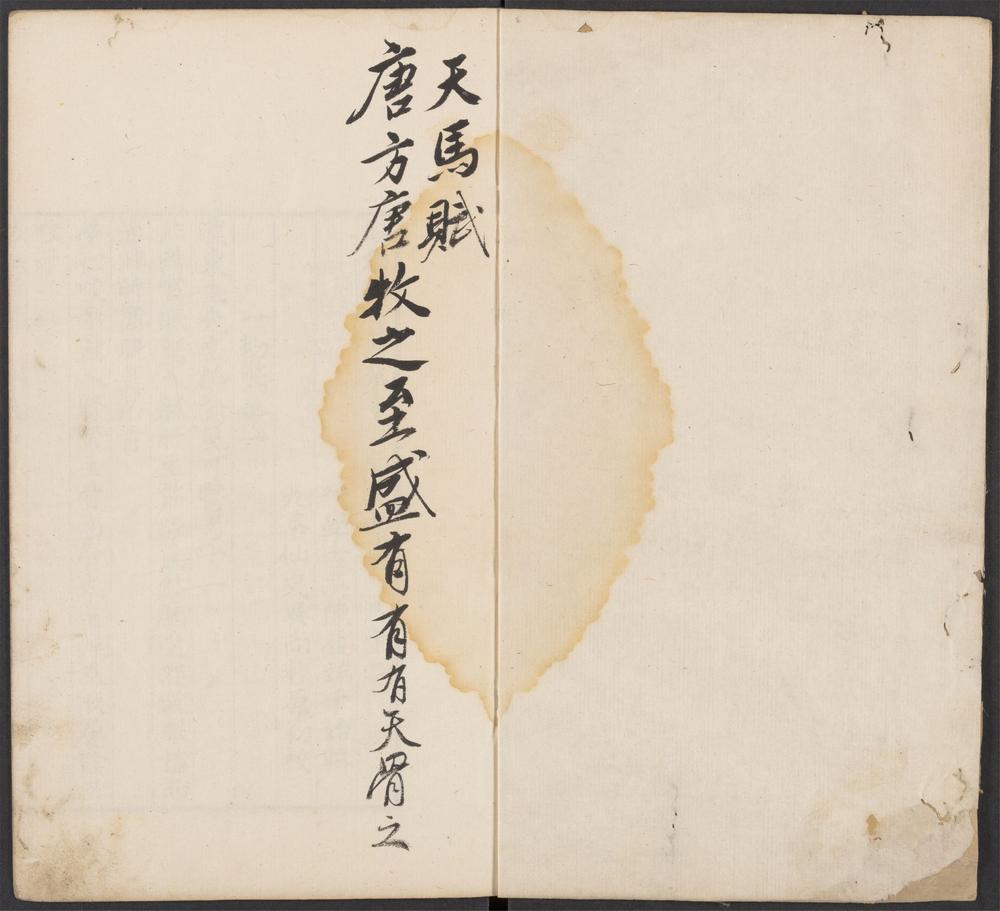 天馬賦
唐方唐牧之至盛有有有天骨之